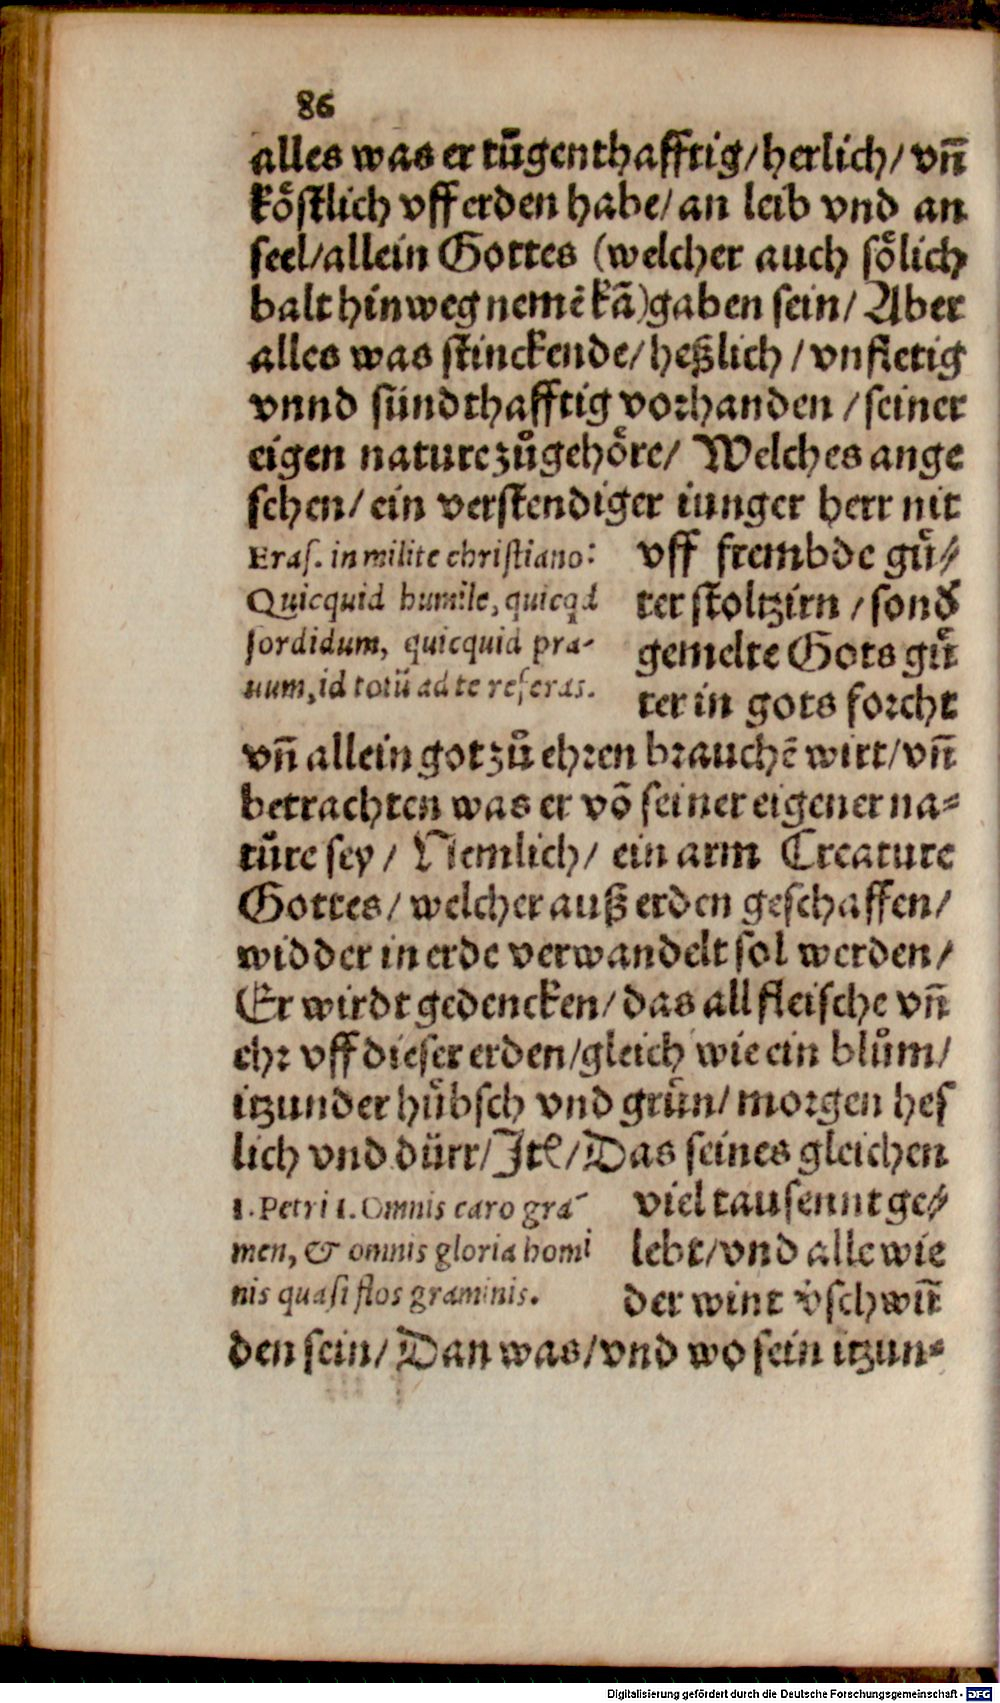 86
alles was er tügenthafftig/herlich/ vñ
köstlich vff erden habe/an leib vnd an
seel/allein Gottes (welcher auch sölich
balt hinweg nemē kā)gaben sein/ Aber
alles was stinckende/heßlich/vnfletig
vnnd sündthafftig vorhanden/seiner
eigen nature zůgehöre/ Welches ange
sehen/ein verstendiger iunger herr nit
Eras. in milite christiano:
Quicquid humile, quicqd
sordidum, quicquid pra-
uum, id totū ad te referas.
vff frembde gů/
ter stoltzirn/sond
gemelte Gots gů
ter in gots forcht
vñ allein got zů ehren brauchē wirt/vñ
betrachten was er võ seiner eigener na=
tůre sey/ Nemlich/ ein arm Creature
Gottes/ welcher auß erden geschaffen/
widder in erde verwandelt sol werden/
Er wirdt gedencken/das all fleische vñ
ehr vff dieser erden/gleich wie ein blům/
itzunder hübsch vnd grün/morgen hes
lich vnd dürr/Itē/Das seines gleichen
1. Petri 1. Omnis caro gra-
men, & omnis gloria homi
nis quasi flos graminis.
viel tausennt ge/
lebt/vnd alle wie
der wint v̇schwū
den sein/Dan was/vnd wo sein itzun=
Digitalisierung gefördert durch die Deutsche Forschungsgemeinschaft - DFG